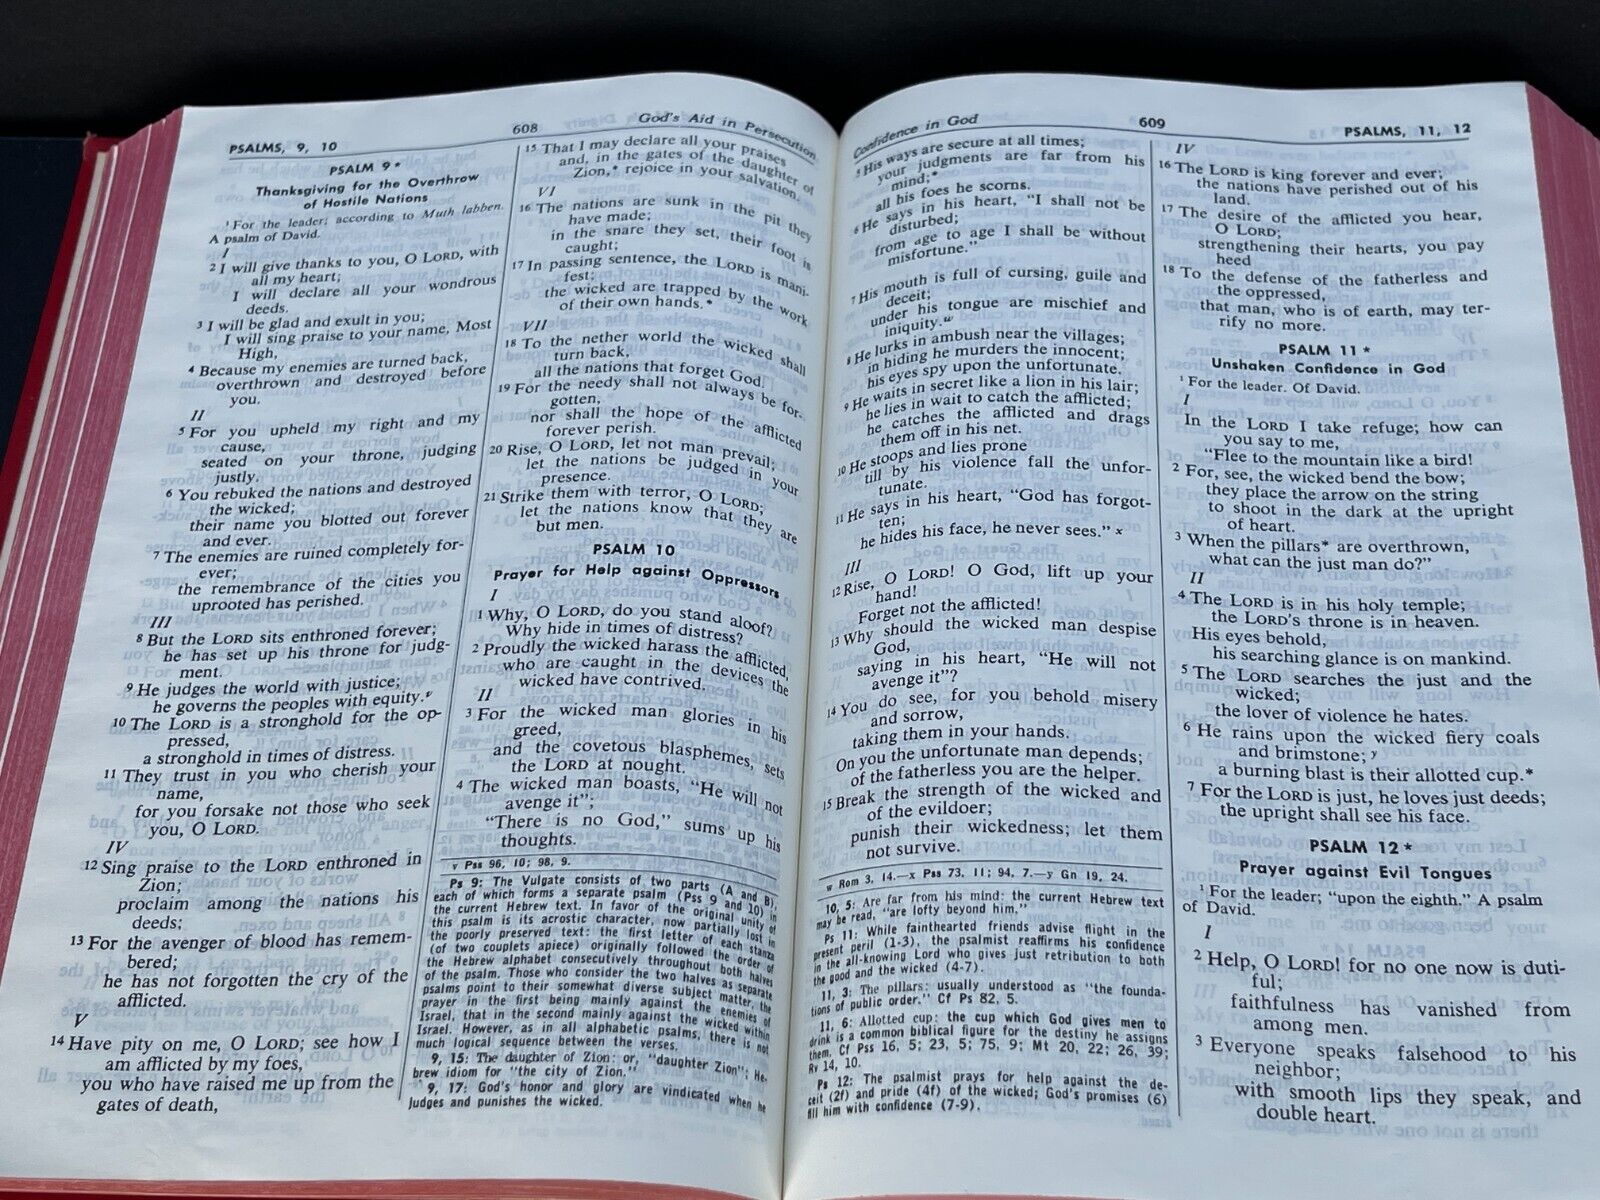 PSALMS, 9, 10
608
God's Aid in Persecution
PSALM 9*
Thanksgiving for the Overthrow
of Hostile Nations
1 For the leader; according to Muth labben.
A psalm of David.
I
2 I will give thanks to you, O LORD, with
all my heart;
I will declare all your wondrous
deeds.
3 I will be glad and exult in you;
I will sing praise to your name, Most
High,
4 Because my enemies are turned back,
overthrown and destroyed before
you.
II
5 For you upheld my right and my
cause,
seated on your throne, judging
justly.
6 You rebuked the nations and destroyed
the wicked;
their name you blotted out forever
and ever.
7 The enemies are ruined completely for-
ever;
the remembrance of the cities you
uprooted has perished.
III
8 But the LORD sits enthroned forever;
he has set up his throne for judg-
ment.
9 He judges the world with justice;
he governs the peoples with equity.v
10 The LORD is a stronghold for the op-
pressed,
a stronghold in times of distress.
11 They trust in you who cherish your
name,
for you forsake not those who seek
you, O LORD.
IV
12 Sing praise to the LORD enthroned in
Zion;
proclaim among the nations his
deeds;
13 For the avenger of blood has remem-
bered;
he has not forgotten the cry of the
afflicted.
V
14 Have pity on me, O LORD; see how I
am afflicted by my foes,
you who have raised me up from the
gates of death,
15 That I may declare all your praises
and, in the gates of the daughter of
Zion,* rejoice in your salvation.
VI
16 The nations are sunk in the pit they
have made;
in the snare they set, their foot is
caught;
17 In passing sentence, the LORD is mani-
fest;
the wicked are trapped by the work
of their own hands.*
VII
18 To the nether world the wicked shall
turn back,
all the nations that forget God.
19 For the needy shall not always be for-
gotten,
nor shall the hope of the afflicted
forever perish.
20 Rise, O LORD, let not man prevail;
let the nations be judged in your
presence.
21 Strike them with terror, O LORD;
let the nations know that they are
but men.
PSALM 10
Prayer for Help against Oppressors
I
1 Why, O LORD, do you stand aloof?
Why hide in times of distress?
2 Proudly the wicked harass the afflicted,
who are caught in the devices the
wicked have contrived.
II
3 For the wicked man glories in his
greed,
and the covetous blasphemes, sets
the LORD at nought.
4 The wicked man boasts, "He will not
avenge it";
"There is no God," sums up his
thoughts.
v Pss 96, 10; 98, 9.
Ps 9: The Vulgate consists of two parts (A and B),
each of which forms a separate psalm (Pss 9 and 10) in
the current Hebrew text. In favor of the original unity of
this psalm is its acrostic character, now partially lost in
the poorly preserved text: the first letter of each stanza
(of two couplets apiece) originally followed the order of
the Hebrew alphabet consecutively throughout both halves
of the psalm. Those who consider the two halves as separate
psalms point to their somewhat diverse subject matter, the
prayer in the first being mainly against the enemies of
Israel, that in the second mainly against the wicked within
Israel. However, as in all alphabetic psalms, there is not
much logical sequence between the verses.
9, 15: The daughter of Zion: or, "daughter Zion"; He-
brew idiom for "the city of Zion."
9, 17: God's honor and glory are vindicated when he
judges and punishes the wicked.
Confidence in God
609
PSALMS, 11, 12
5 His ways are secure at all times;
your judgments are far from his
mind;*
all his foes he scorns.
6 He says in his heart, "I shall not be
disturbed;
from age to age I shall be without
misfortune."
7 His mouth is full of cursing, guile and
deceit;
under his tongue are mischief and
iniquity.w
8 He lurks in ambush near the villages;
in hiding he murders the innocent;
his eyes spy upon the unfortunate.
9 He waits in secret like a lion in his lair;
he lies in wait to catch the afflicted;
he catches the afflicted and drags
them off in his net.
10 He stoops and lies prone
till by his violence fall the unfor-
tunate.
11 He says in his heart, "God has forgot-
ten;
he hides his face, he never sees." x
III
12 Rise, O LORD! O God, lift up your
hand!
Forget not the afflicted!
13 Why should the wicked man despise
God,
saying in his heart, "He will not
avenge it"?
14 You do see, for you behold misery
and sorrow,
taking them in your hands.
On you the unfortunate man depends;
of the fatherless you are the helper.
15 Break the strength of the wicked and
of the evildoer;
punish their wickedness; let them
not survive.
w Rom 3, 14.—x Pss 73, 11; 94, 7.—y Gn 19, 24.
10, 5: Are far from his mind: the current Hebrew text
may be read, "are lofty beyond him."
Ps 11: While fainthearted friends advise flight in the
present peril (1-3), the psalmist reaffirms his confidence
in the all-knowing Lord who gives just retribution to both
the good and the wicked (4-7).
11, 3: The pillars: usually understood as "the founda-
tions of public order." Cf Ps 82, 5.
11, 6: Allotted cup: the cup which God gives men to
drink is a common biblical figure for the destiny he assigns
them. Cf Pss 16, 5; 23, 5; 75, 9; Mt 20, 22; 26, 39;
Rv 14, 10.
Ps 12: The psalmist prays for help against the de-
ceit (2f) and pride (4f) of the wicked; God's promises (6)
fill him with confidence (7-9).
IV
16 The LORD is king forever and ever;
the nations have perished out of his
land.
17 The desire of the afflicted you hear,
O LORD;
strengthening their hearts, you pay
heed
18 To the defense of the fatherless and
the oppressed,
that man, who is of earth, may ter-
rify no more.
PSALM 11*
Unshaken Confidence in God
1 For the leader. Of David.
I
In the LORD I take refuge; how can
you say to me,
"Flee to the mountain like a bird!
2 For, see, the wicked bend the bow;
they place the arrow on the string
to shoot in the dark at the upright
of heart.
3 When the pillars* are overthrown,
what can the just man do?"
II
4 The LORD is in his holy temple;
the LORD's throne is in heaven.
His eyes behold,
his searching glance is on mankind.
5 The LORD searches the just and the
wicked;
the lover of violence he hates.
6 He rains upon the wicked fiery coals
and brimstone; y
a burning blast is their allotted cup.*
7 For the LORD is just, he loves just deeds;
the upright shall see his face.
PSALM 12*
Prayer against Evil Tongues
1 For the leader; "upon the eighth." A psalm
of David.
I
2 Help, O LORD! for no one now is duti-
ful;
faithfulness has vanished from
among men.
3 Everyone speaks falsehood to his
neighbor;
with smooth lips they speak, and
double heart.